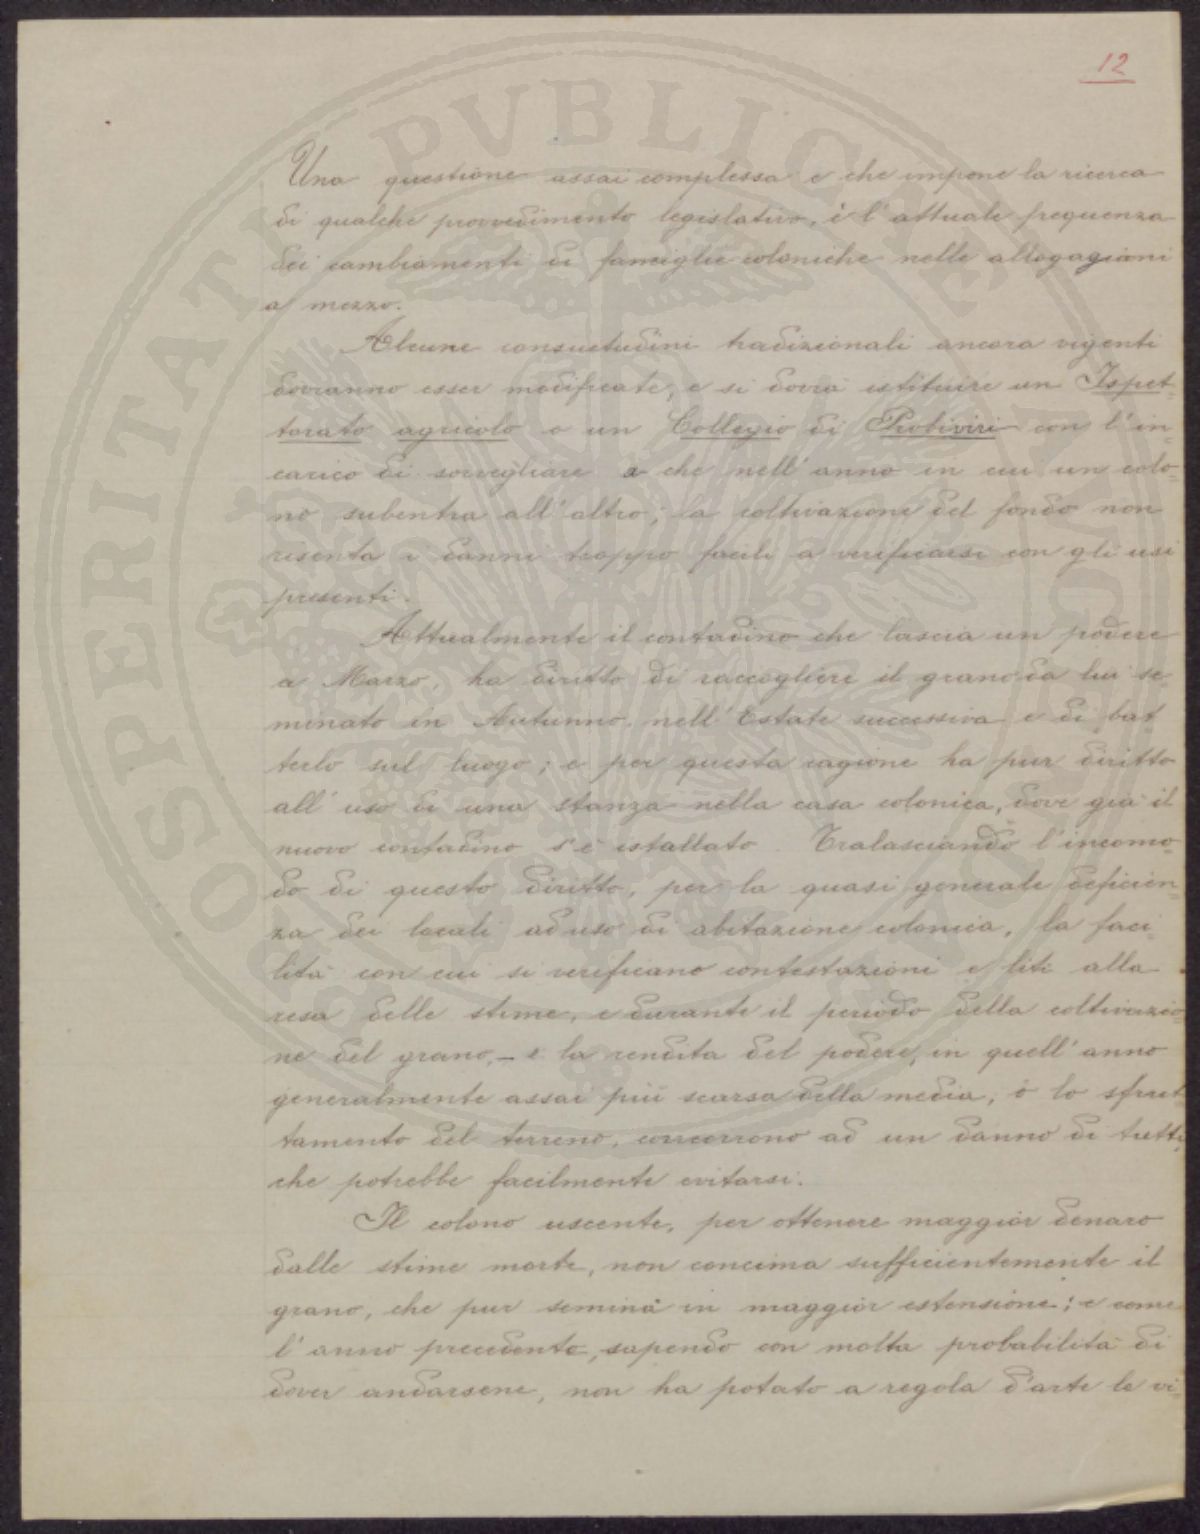 12
Una questione assai complessa e che impone la ricerca
di qualche provvedimento legislativo, è l'attuale frequenza
dei cambiamenti di famiglie coloniche nelle allogagioni
a mezzo.
Alcune consuetudini tradizionali ancora vigenti
dovranno esser modificate, e si dovrà istituire un Ispet-
torato agricolo o un Collegio di Probiviri con l'in-
carico di sorvegliare a che nell'anno in cui un colo-
no subentra all'altro, la coltivazione del fondo non
risenta i danni troppo facili a verificarsi con gli usi
presenti.
Attualmente il contadino che lascia un podere
a Marzo, ha diritto di raccogliere il grano da lui se-
minato in Autunno, nell'Estate successiva e di bat-
terlo sul luogo; e per questa ragione ha pur diritto
all'uso di una stanza nella casa colonica, dove già il
nuovo contadino s'è istallato. Tralasciando l'incomo-
do di questo diritto, per la quasi generale deficien-
za dei locali ad uso di abitazione colonica, la faci-
lità con cui si verificano contestazioni e liti alla
resa delle stime, e durante il periodo della coltivazio-
ne del grano, - e la rendita del podere, in quell'anno
generalmente assai più scarsa della media, è lo sfrut-
tamento del terreno, concorrono ad un danno di tutti,
che potrebbe facilmente evitarsi.
Il colono uscente, per ottenere maggior denaro
dalle stime morte, non concima sufficientemente il
grano, che pur semina in maggior estensione; e come
l'anno precedente, sapendo con molta probabilità di
dover andarsene, non ha potato a regola d'arte le vi-
PROSPERITATI PVBLICAE AVGENDAE